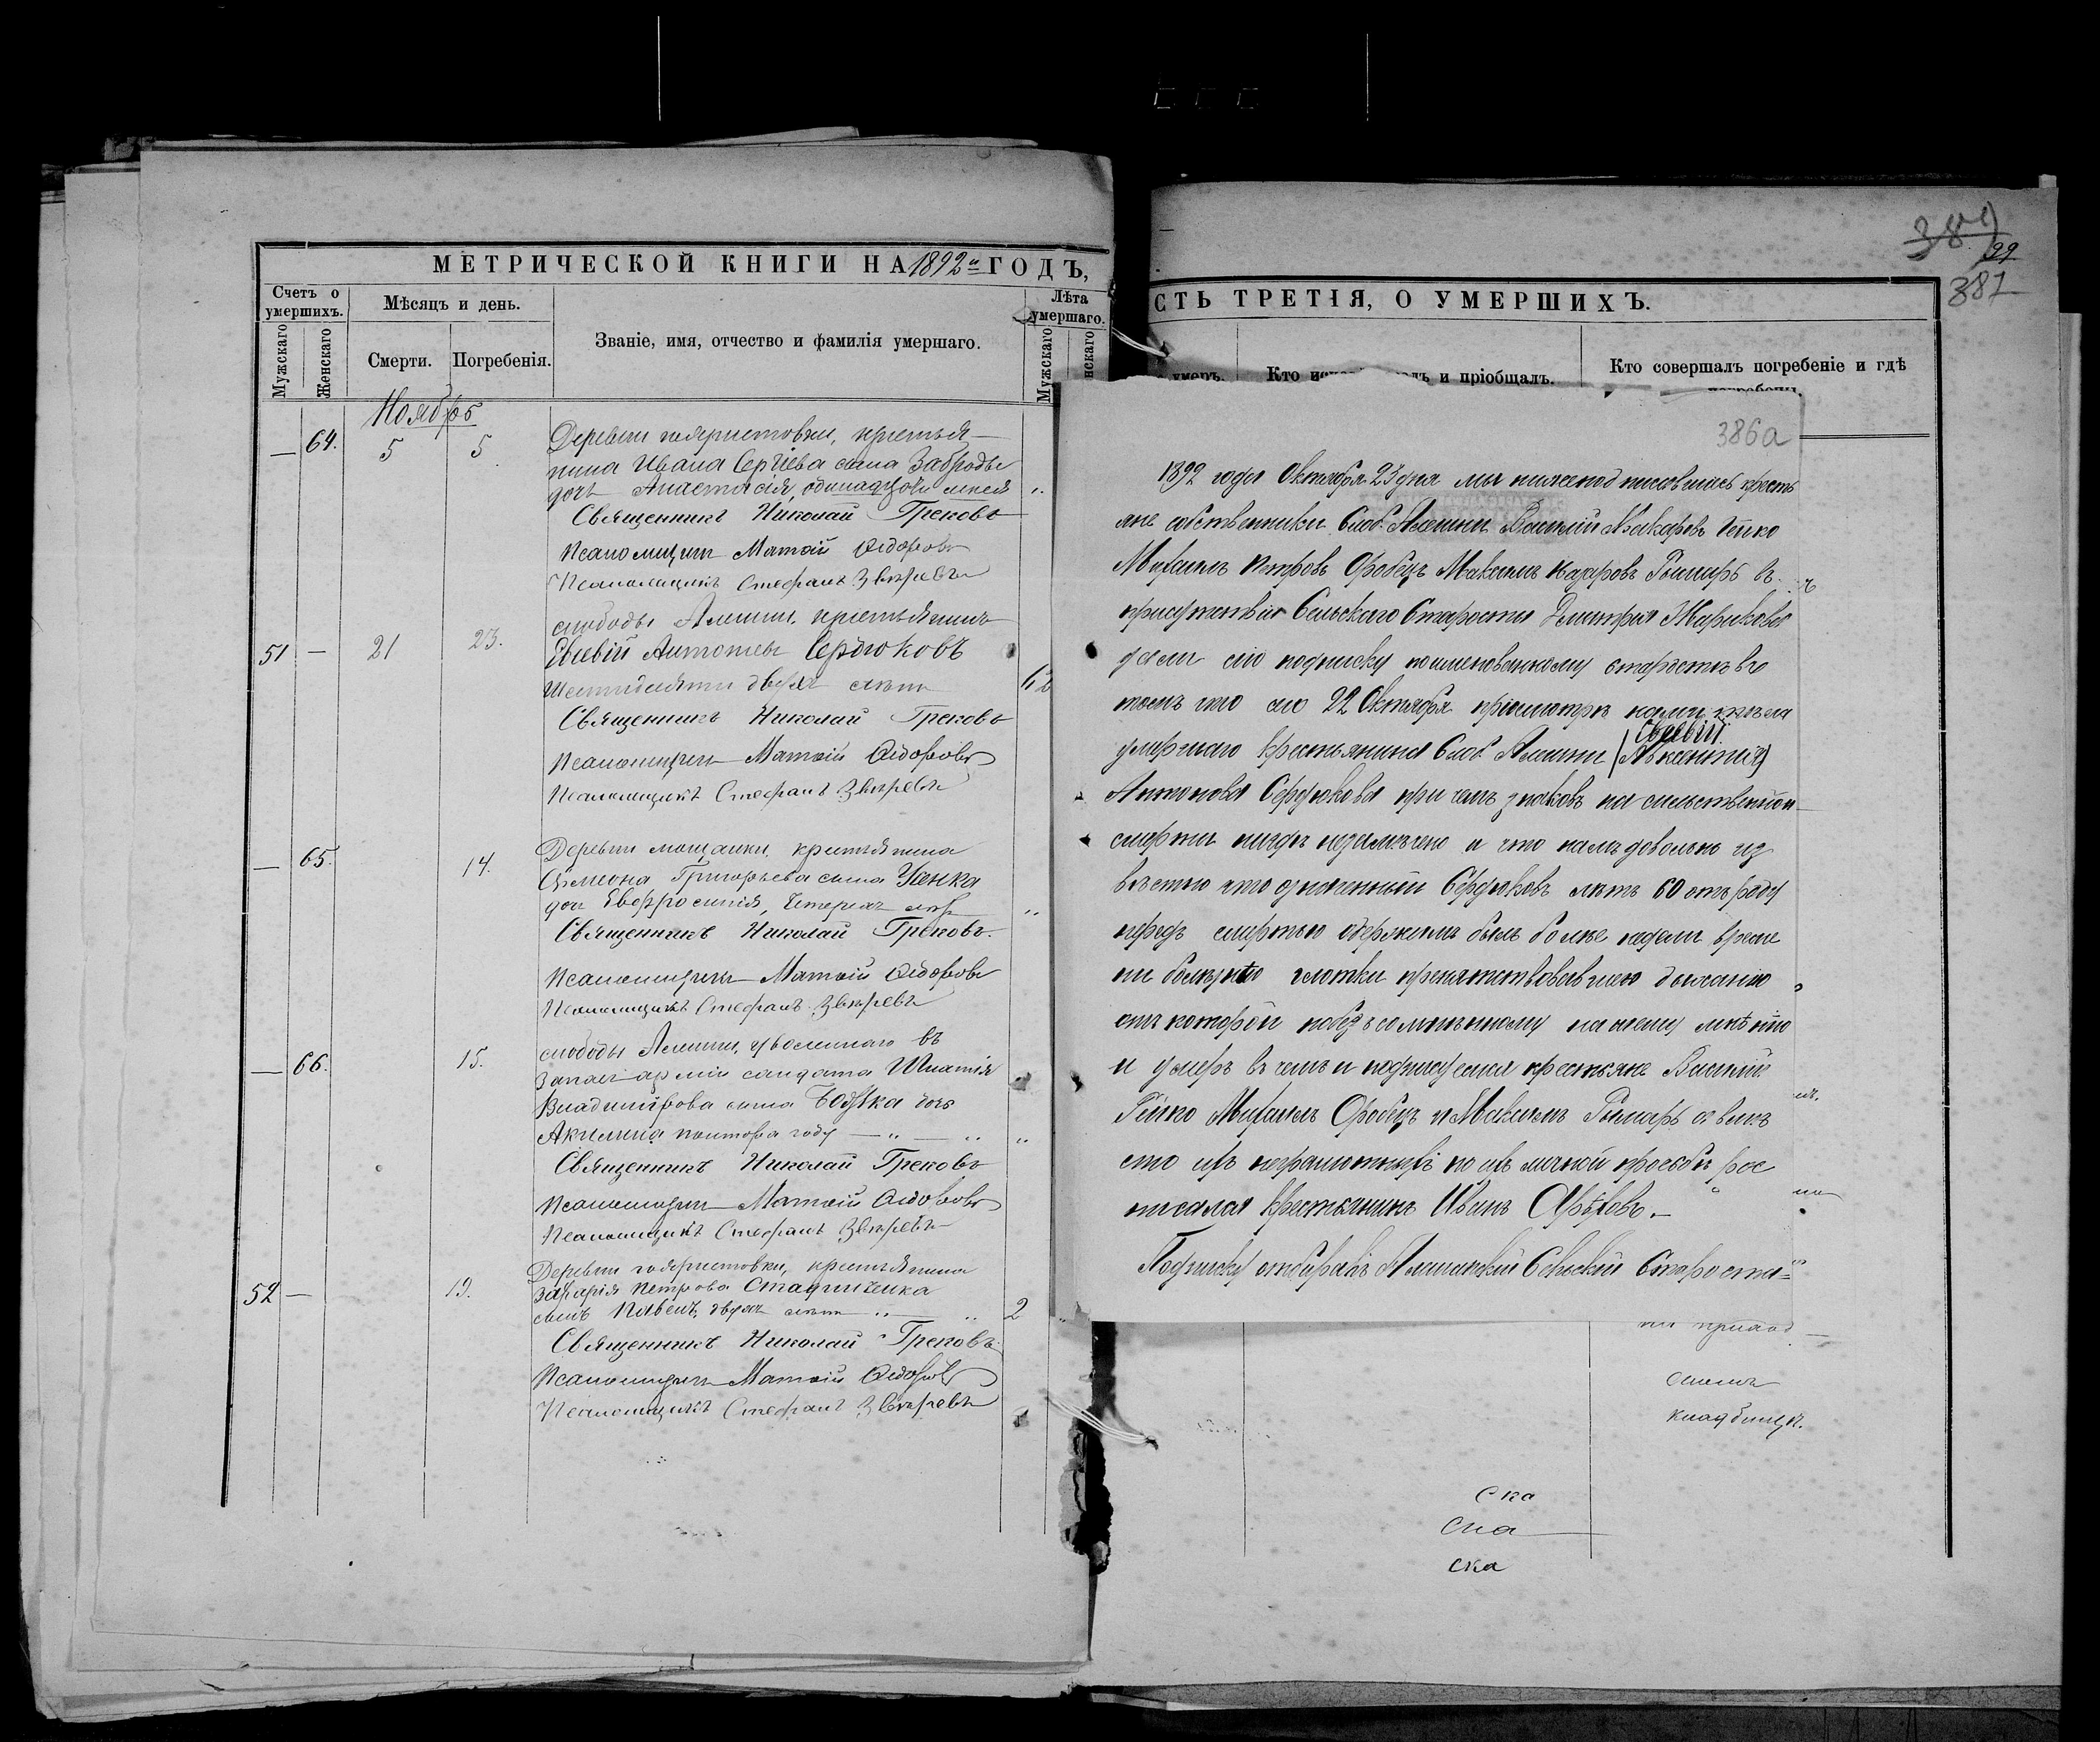 МЕТРИЧЕСКОЙ КНИГИ НА 1892й ГОДЪ,
Счетъ о умершихъ.
Мужскаго
Женскаго
Мѣсяцъ и день.
Смерти.
Погребенія.
Званіе, имя, отчество и фамилія умершаго.
Лѣта умершаго.
Мужскаго
нскаго
Ноябрь
64. 5 5 Деревни крестья-
нина Ивана Сергіева сына
дочь Анастасія, лѣтъ
Священникъ Николай Грековъ
Псаломщикъ Матѳій Ѳедоровъ
Псаломщикъ Стефанъ Звѣревъ
слободы Алешни, крестьянинъ
51 — 21 23. Евсевій Антоновъ Сердюковъ
шестидесяти двухъ лѣтъ 62
Священникъ Николай Грековъ
Псаломщикъ Матѳій Ѳедоровъ
Псаломщикъ Стефанъ Звѣревъ
Деревни крестьянина
— 65. 14. Сѵмеона Григорьева сына Усенка
дочь Евфросинія, четырехъ лѣтъ
Священникъ Николай Грековъ.
Псаломщикъ Матѳій Ѳедоровъ
Псаломщикъ Стефанъ Звѣревъ
слободы Алешни, уволеннаго въ
— 66. 15. запасъ арміи солдата Игнатія
Владимірова сына дочь
Акилина полтора году
Священникъ Николай Грековъ
Псаломщикъ Матѳій Ѳедоровъ
Псаломщикъ Стефанъ Звѣревъ
Деревни крестьянина
52 — 19. Захарія Петрова
сынъ Павелъ, двухъ лѣтъ 2
Священникъ Николай Грековъ
Псаломщикъ Матѳій Ѳедоровъ
Псаломщикъ Стефанъ Звѣревъ
387
СТЬ ТРЕТІЯ, О УМЕРШИХЪ.
умеръ.
Кто и пріобщалъ.
Кто совершалъ погребеніе и гдѣ
386а
1892 года Октября 23 дня мы нижеподписавшись кресть
яне собственники Слоб. Алешни Василій Макаровъ
Михаилъ Петровъ Оробецъ Максимъ Назаровъ Рымарь въ
присутствіи Сельскаго Старосты Дмитрія Жарикова
дали сію подписку поименованному старостѣ въ
томъ что сего 22 Октября при осмотрѣ нами тѣла
Евсевій
умершаго Крестьянина Слоб. Алешни
Антонова Сердюкова при чемъ знаковъ на сильственной
смерти нигдѣ незамѣчено и что намъ довольно из
вѣстно что означенный Сердюковъ лѣтъ 60 отъ роду
предъ смертью одержимъ былъ болѣе недели време
ни болѣзнію глотки препятствовавшею дыханію
отъ которой по нашему мнѣнію
и умеръ въ чемъ и подписуемся крестьяне Василій
Михаилъ Оробецъ и Максимъ Рымарь а вмѣ
сто ихъ неграмотныхъ по ихъ личной просьбѣ рос
писался Крестьянинъ Иванъ
Подписку отбиралъ Алешанскій Сельскій Староста=
приход
скомъ
кладбищѣ.
ска
ска
ска